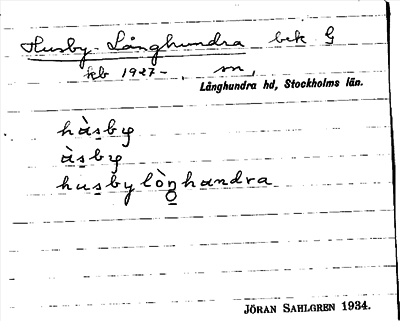 Husby-Långhundra bek G
kb 1927-, sn,
Långhundra hd, Stockholms län.
hàsby
àsby
husbylònhandra
JÖRAN SAHLGREN 1934.